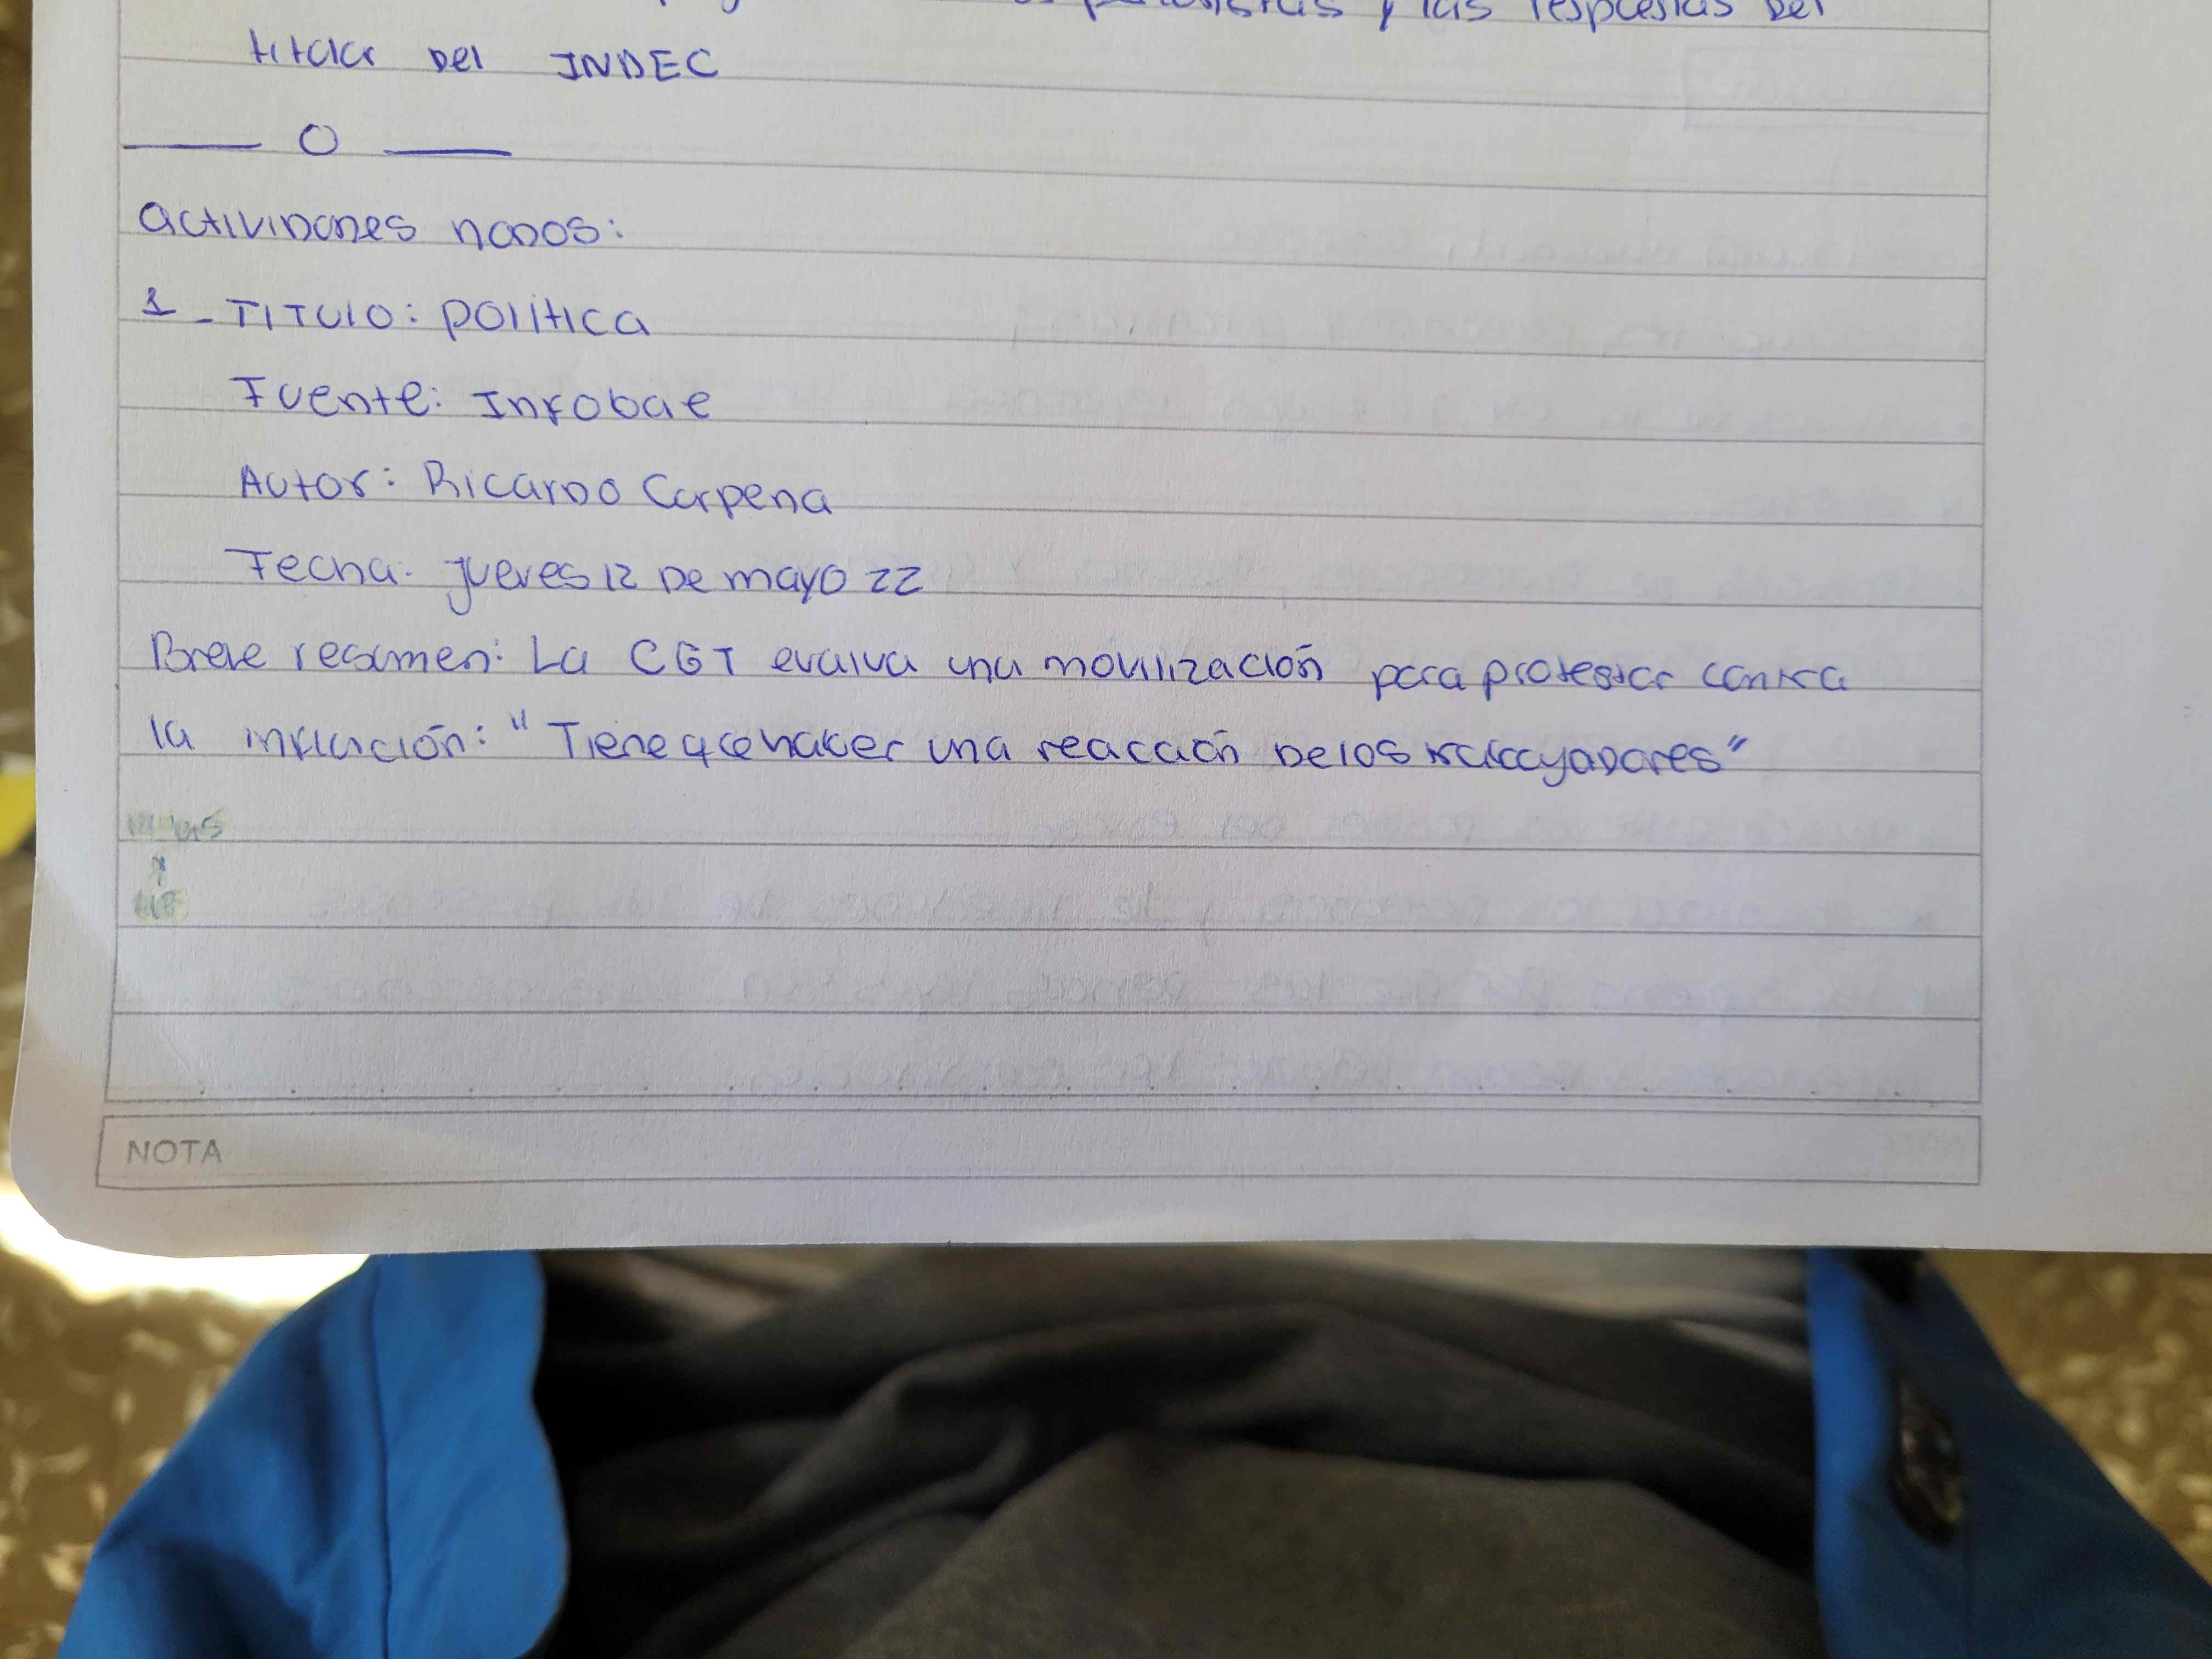 periodistas y las respuestas del
titular Del INDEC
—— O ——
Actividades nodos:
1 - TITULO: política
Fuente: Infobae
Autor: Ricardo Carpena
Fecha: jueves 12 De mayo 22
Breve resumen: La CGT evalua una movilización para protestar contra
la inflación: "Tiene que haber una reacción De los trabajadores"
NOTA